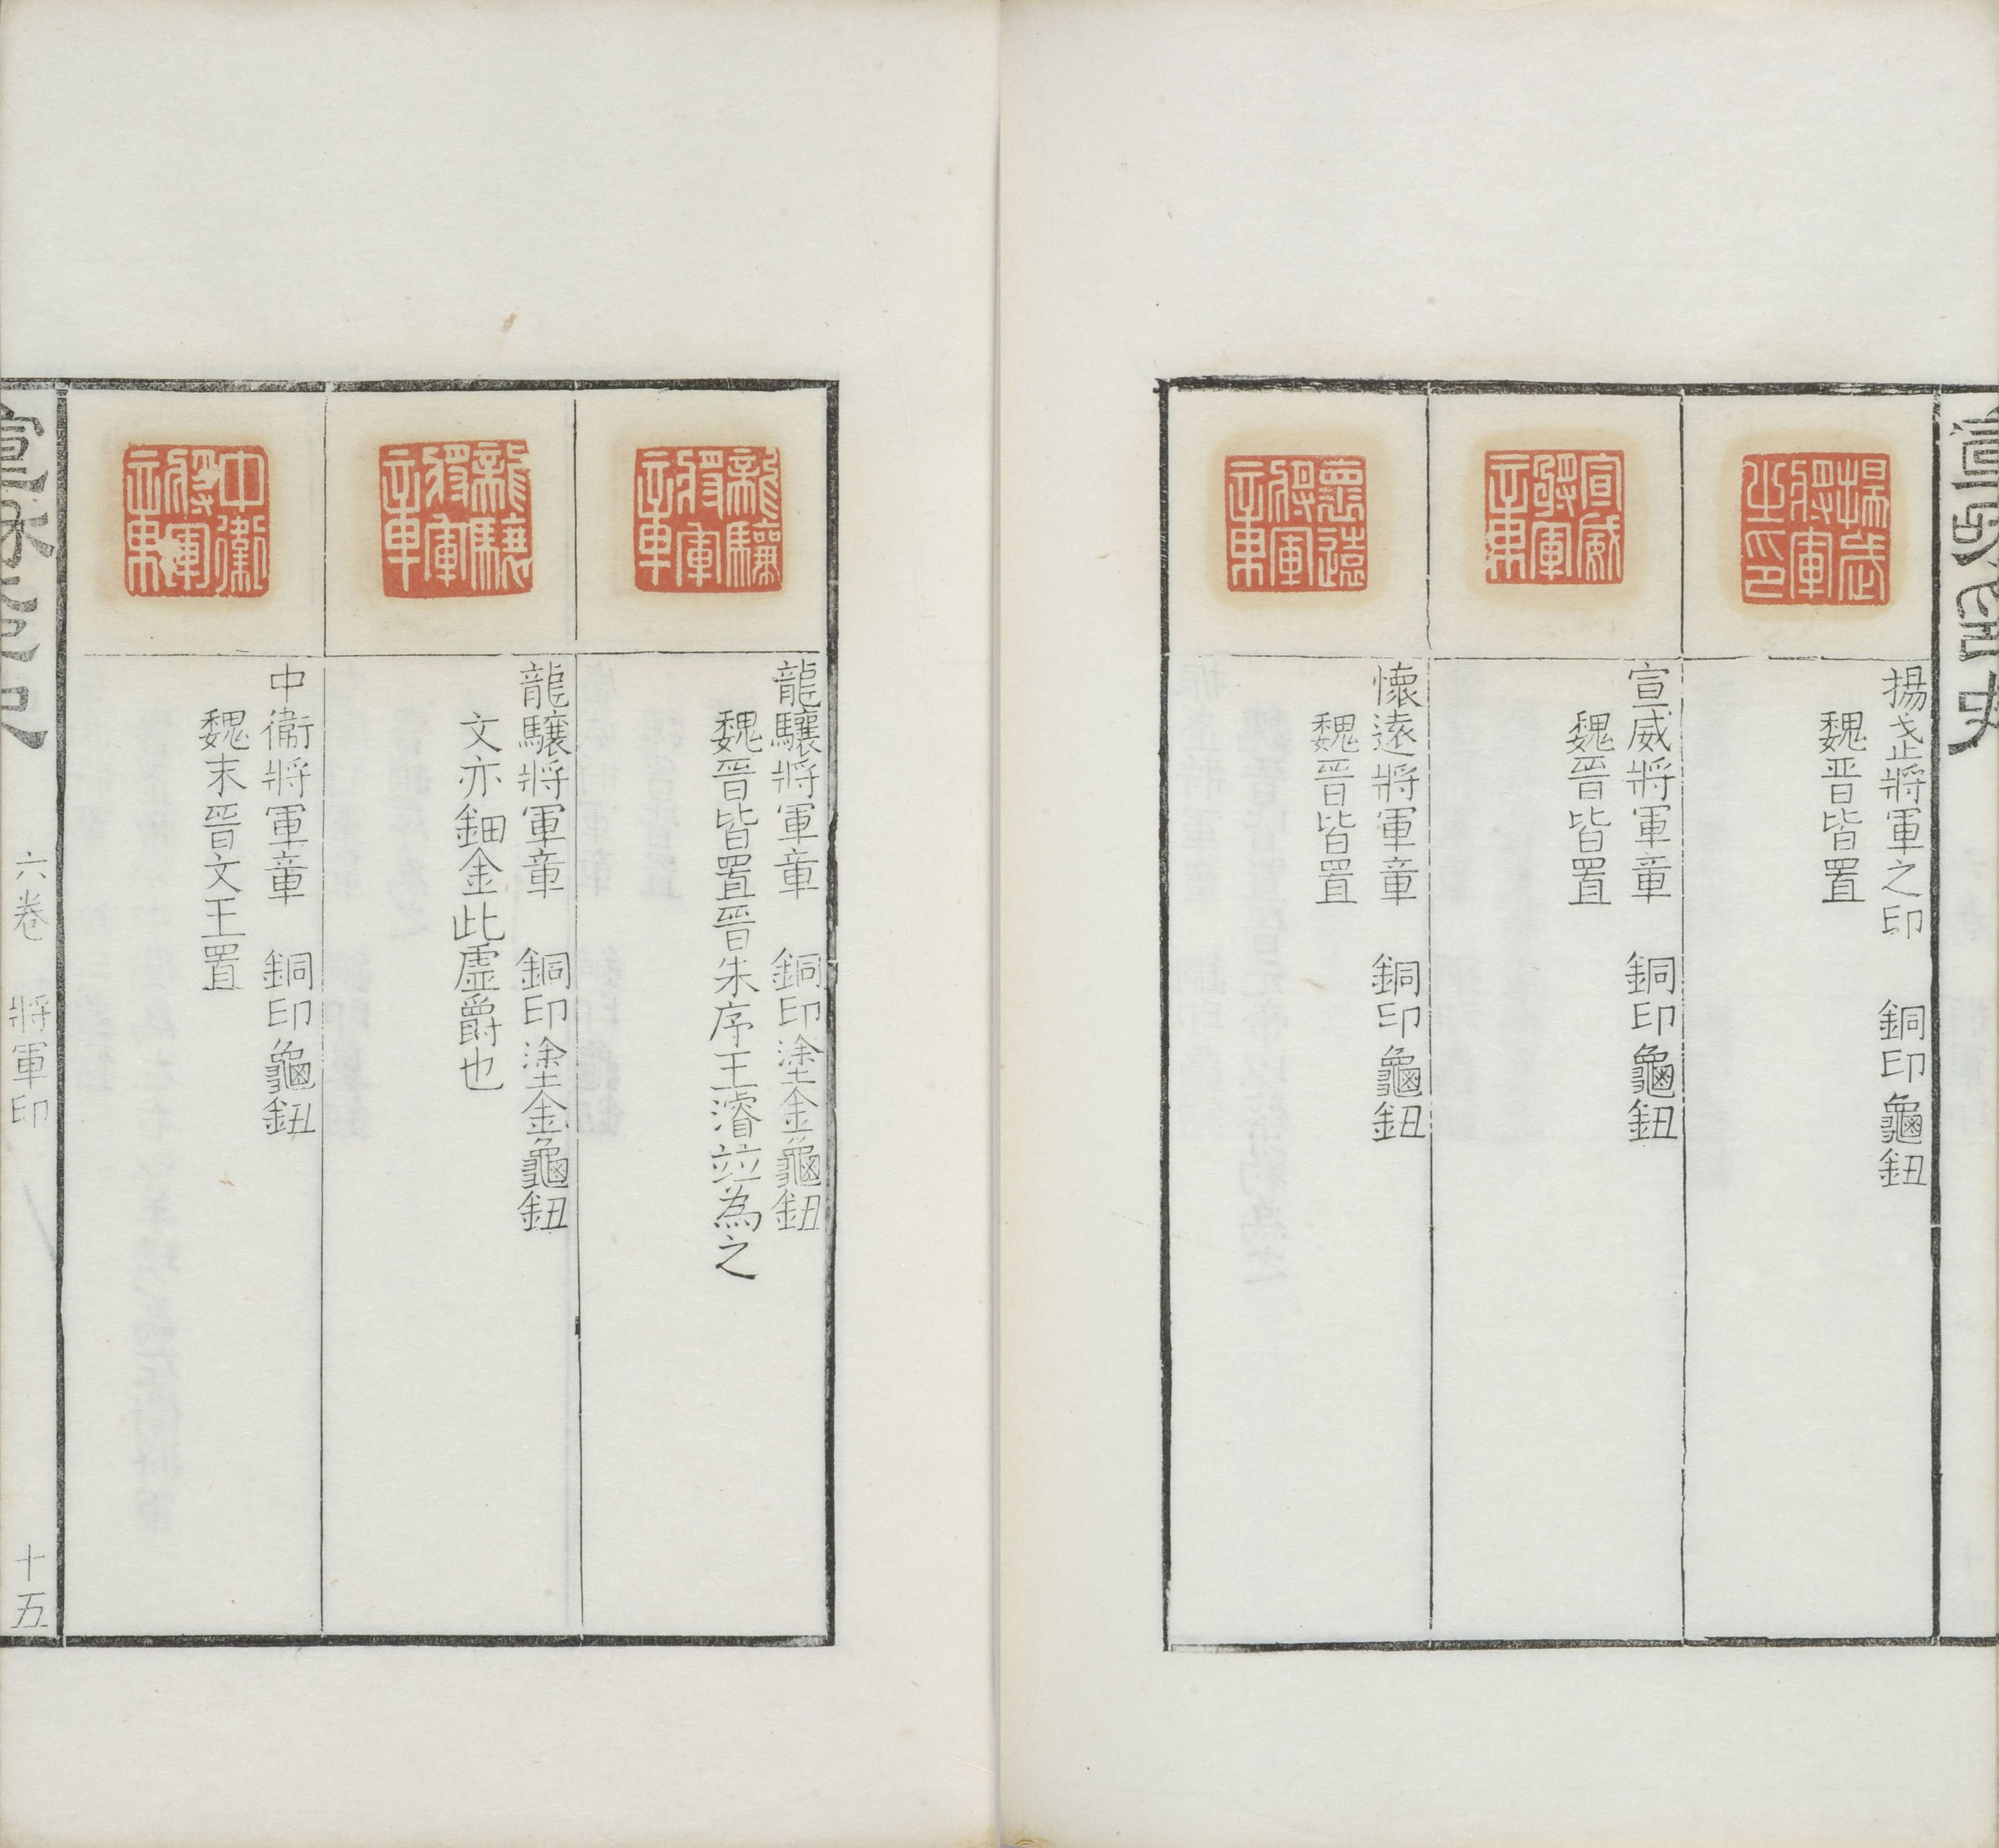 揚武將軍之印
揚武將軍之印　銅印龜鈕
魏晉皆置
宣威將軍章
宣威將軍章　銅印龜鈕
魏晉皆置
懷遠將軍章
懷遠將軍章　銅印龜鈕
魏晉皆置
龍驤將軍章
龍驤將軍章　銅印塗金龜鈕
魏晉皆置晉朱序王濬竝為之
龍驤將軍章
龍驤將軍章　銅印塗金龜鈕
文亦鈿金此虛爵也
中衛將軍章
中衛將軍章　銅印龜鈕
魏末晉文王置
六卷　將軍印　十五